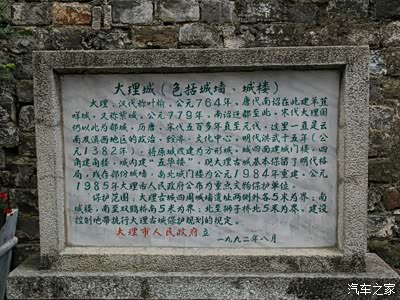 大理城（包括城墙、城楼）
大理，汉代称叶榆，公元764年，唐代南诏在此建羊苴
咩城，又称紫城，公元779年，南诏迁都至此，宋代大理国
仍以此为都城，历唐、宋代五百多年直至元代，这里一直是云
南及滇西地区的政治、经济、文化中心，明代洪武十五年（公
元1382年），将原城改建为方形城，城四面建城门楼，四
角建角楼，城内建“五华楼”，现大理古城基本保留了明代格
局，残存部份城墙，南北城门楼为公元1984年重建，公元
1985年大理市人民政府公布为重点文物保护单位。
保护范围：大理古城四周城墙遗址两侧外各5米为界；南
城楼，南至双鹤桥南5米为界；北至狮子桥北5米为界，建设
控制地带执行大理古城保护规划的规定。
大理市人民政府立
一九九二年八月
汽车之家